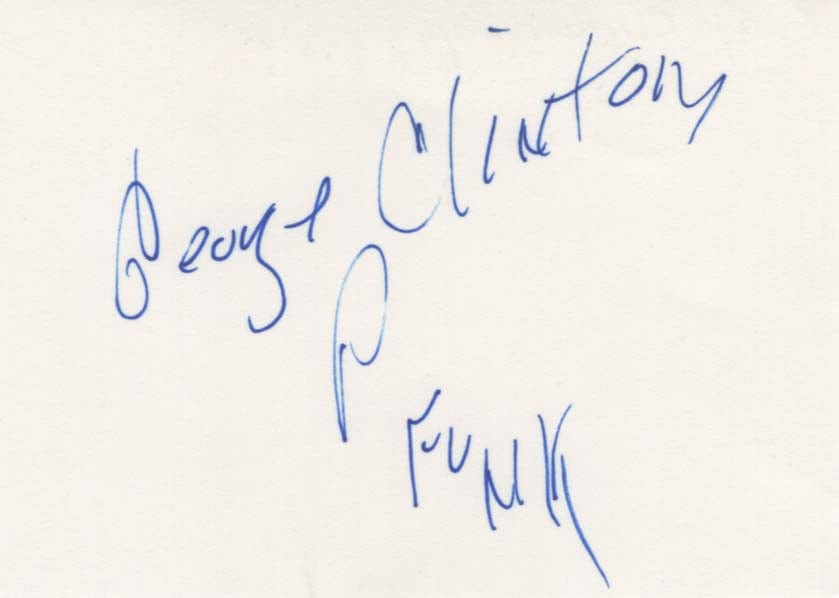 George Clinton
P
FUNK